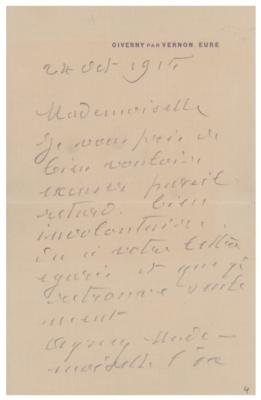 GIVERNY PAR VERNON. EURE
24 Oct 1915
Mademoiselle
Je vous prie de
bien vouloir
excuser pareil
retard. bien
involontaire
du à votre lettre
egarée et que j'ai
retrouvé
ment
Agréez Made-
moiselle
4